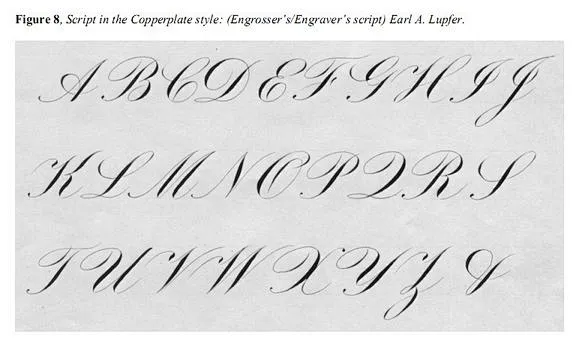 Figure 8, Script in the Copperplate style: (Engrosser's/Engraver's script) Earl A. Lupfer.
A B C D E F G H I J
K L M N O P Q R S
T U V W X Y Z &